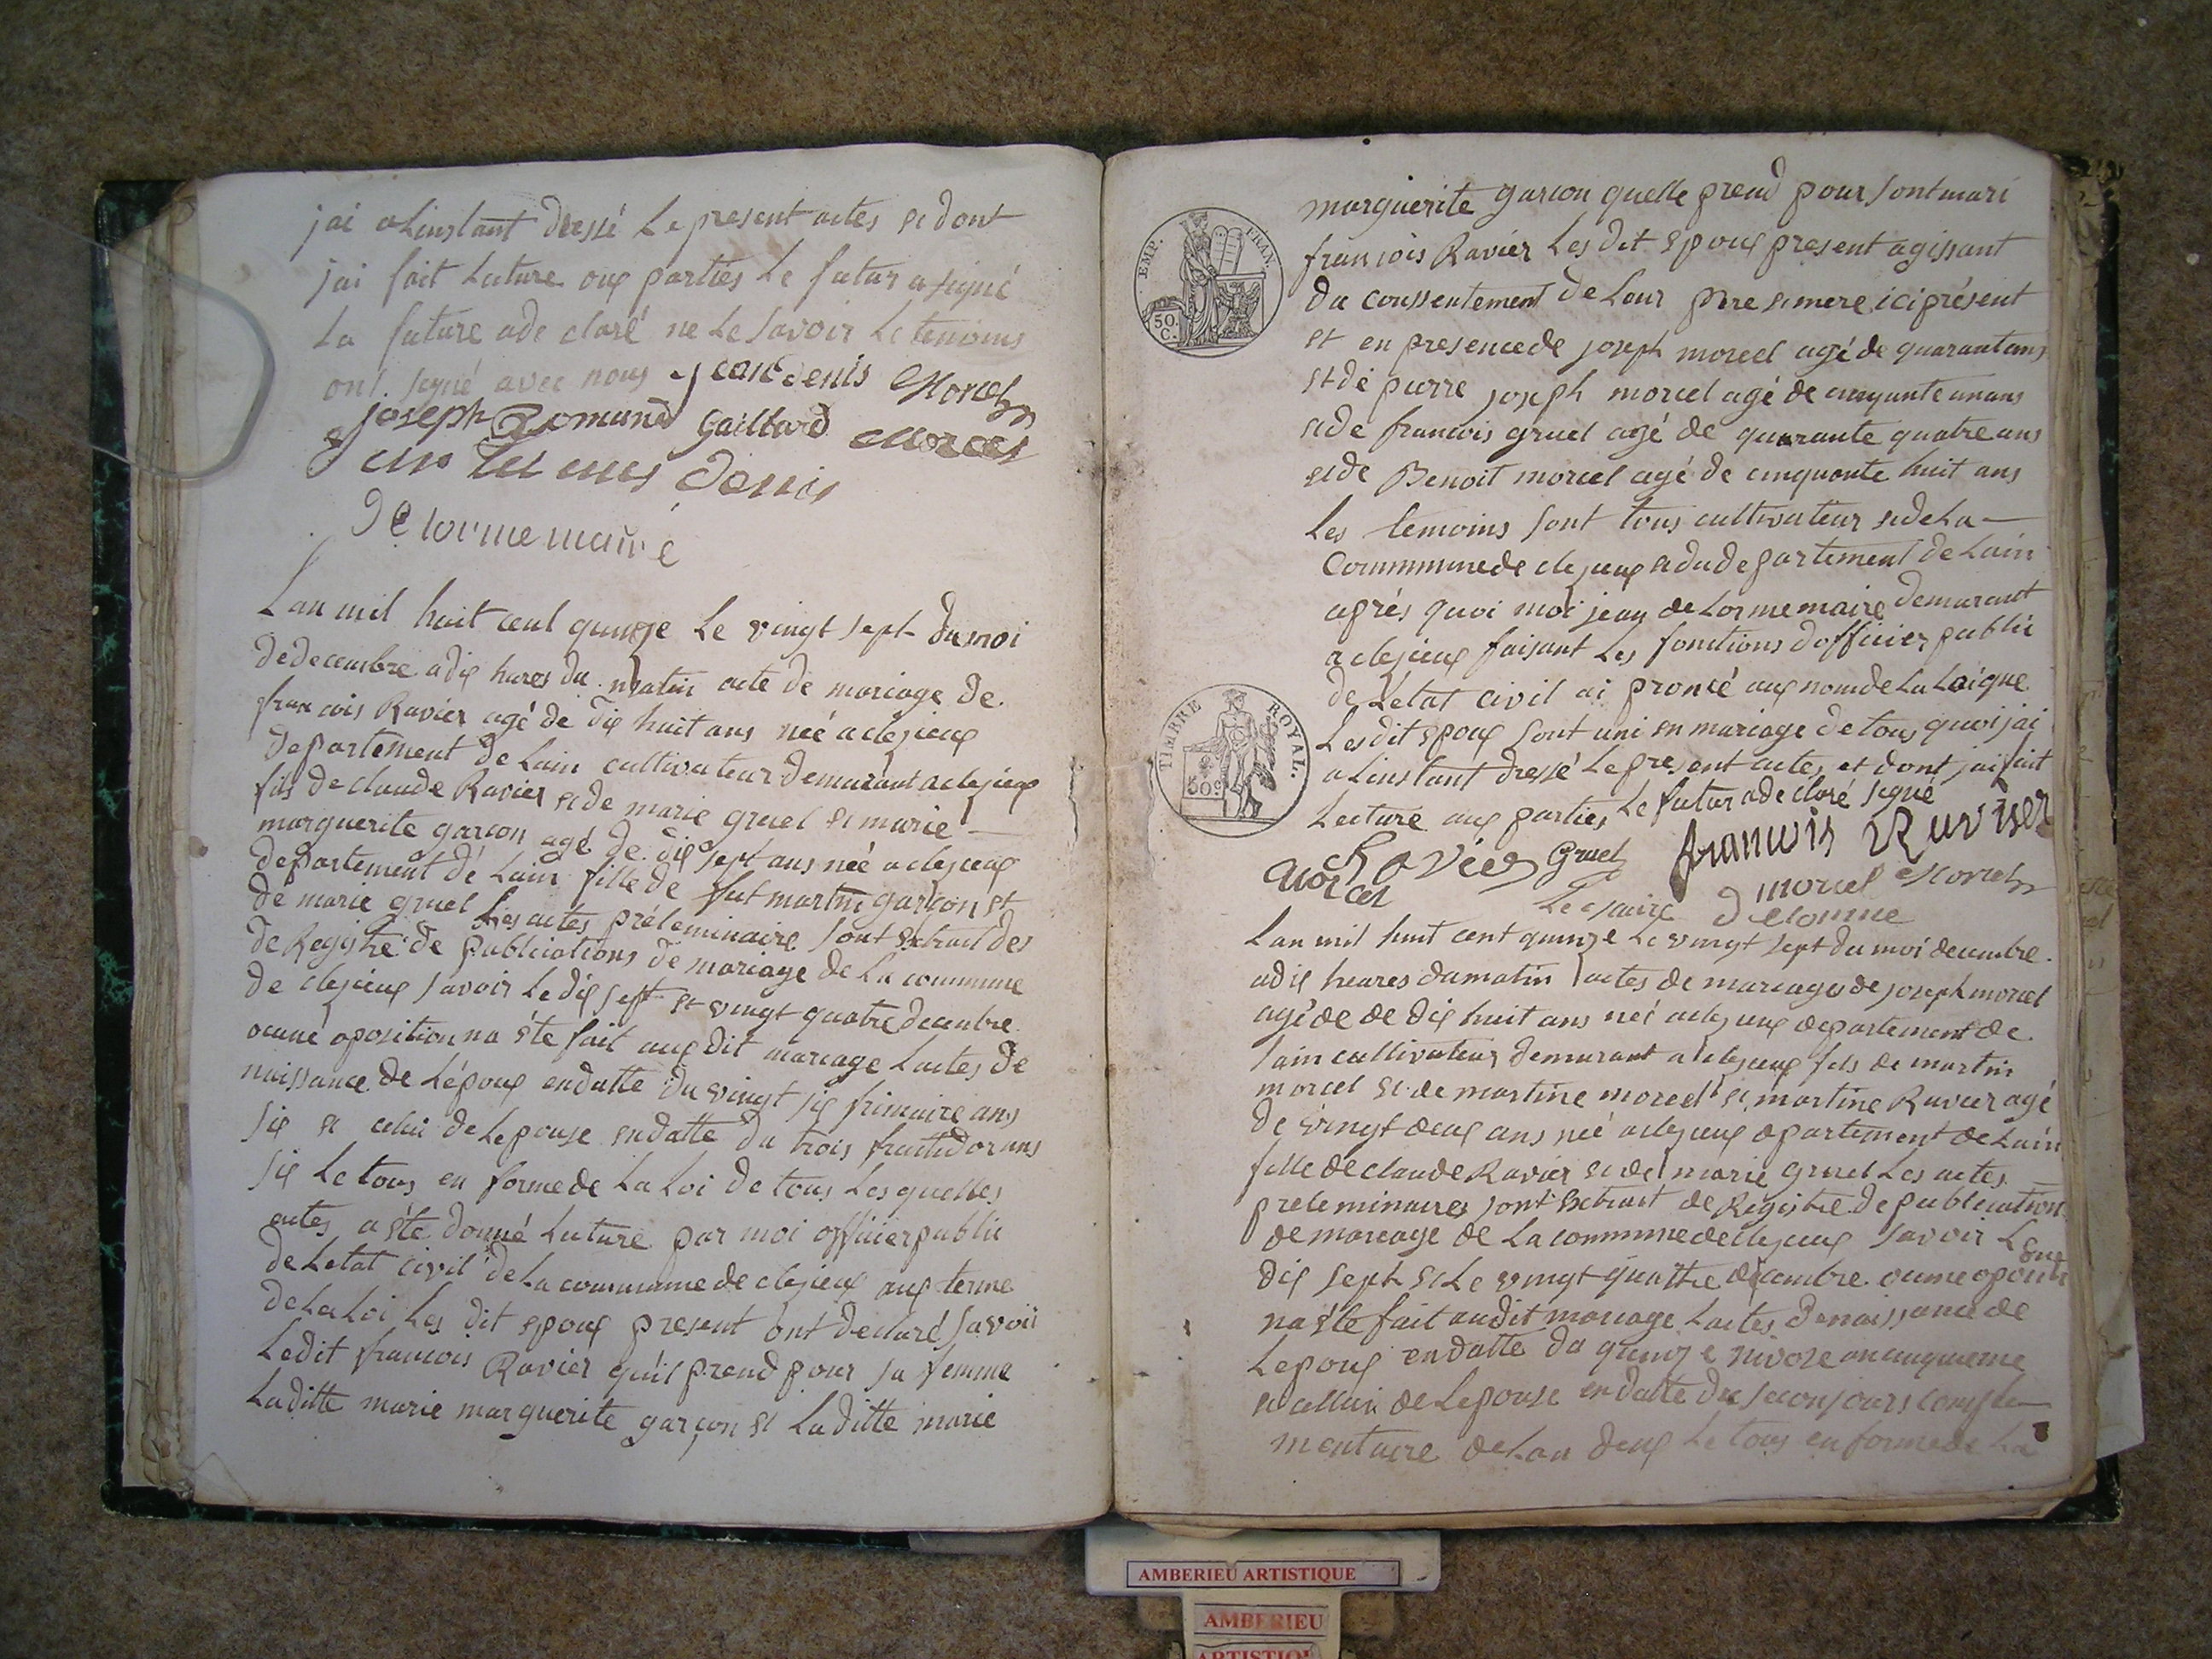 jai a Linstant dressé Le present actes et dont
jai fait Lecture oux parties Le futur a signé
La future a de claré ne Le savoir Le temoins
ont signé avec nous jean denis Morcel
joseph Romund Gaillard Morcel
denis
De lorme maire
Lan mil huit cent quinze Le vingt sept du moi
de decembre a dix hures du matin acte de mariage de
francois Ravier agé de dix huit ans neé a clezieux
departement de Lain cultivateur demurant a clezieux
fils de claude Ravier et de marie gruel et marie —
marguerite garcon agé de dix sept ans neé a clezieux
departement de Lain fille de fut martin garçon et
de marie gruel Les actes préleminaire sont extrait des
de Registre de publications de mariage de La commune
de clezieux savoir Le dix sept et vingt quatre decembre
oqune oposition na éte fait aux dit mariage Lactes de
naissance de Lépoux en datte du vingt six frimaire ans
six et celui de Lepouse en datte du trois fructidor ans
six Le tous en forme de La Loi de tous Les quelles
actes a éte donné Lecture par moi officier public
de Letat civil de La commune de clezieux aux terme
de La Loi Les dit epoux present ont declaré savoir
Ledit francois Ravier quil prend pour sa femme
Laditte marie marguerite garçon et Laditte marie
EMP. FRAN.
50. C.
marguerite garcon quelle prend pour sont mari
francois Ravier Les dit epoux present agissant
du conssentement de Leur pere et mere ici présent
et en presence de joseph morcel agé de quarant ans
et de pierre joseph morcel agé de cinquante un ans
et de francois gruel agé de quarante quatre ans
et de Benoit morcel agé de cinquante huit ans
Les temoins sont tous cultivateur et de La —
Commmune de clezieux et du departement de Lain
aprés quoi moi jean de Lorme maire demurant
a clezieux faisant Les fonctions dofficier public
de Létat civil ai proncé aux nom de La Loi que
TIMBRE ROYAL.
50 c
Les dit epoux sont uni en mariage de tous quoi jai
a Linstant dressé Le present actes et dont jai fait
Lecture aux parties Le futur a de claré signé
Ravier Gruel francois Ravier
Morcel morcel Morcel
Le maire Delorme
Lan mil huit cent quinze Le vingt sept du moi decembre
a dix heures du matin actes de mariages de joseph morcel
agé de de dix huit ans neé a clezieux departement de
Lain cultivateur demurant a clezieux fils de martin
morcel et de martine morcel et martine Ravier agé
de vingt deux ans neé a clezieux departement de Lain
fille de claude Ravier et de marie gruel Les actes —
preleminaires sont extrait de Registre de publication
de mariage de La commune de clezieux savoir Le
dix sept et Le vingt quattre decembre oqune oposition
na éte fait audit mariage Lactes de naissance de
Lepoux en datte du quinze nivose an cinquieme
et cellui de Lepouse en datte du secon jours comple
mentaire de Lan deux Le tous en forme de La
AMBERIEU ARTISTIQUE
AMBERIEU
ARTISTIQUE